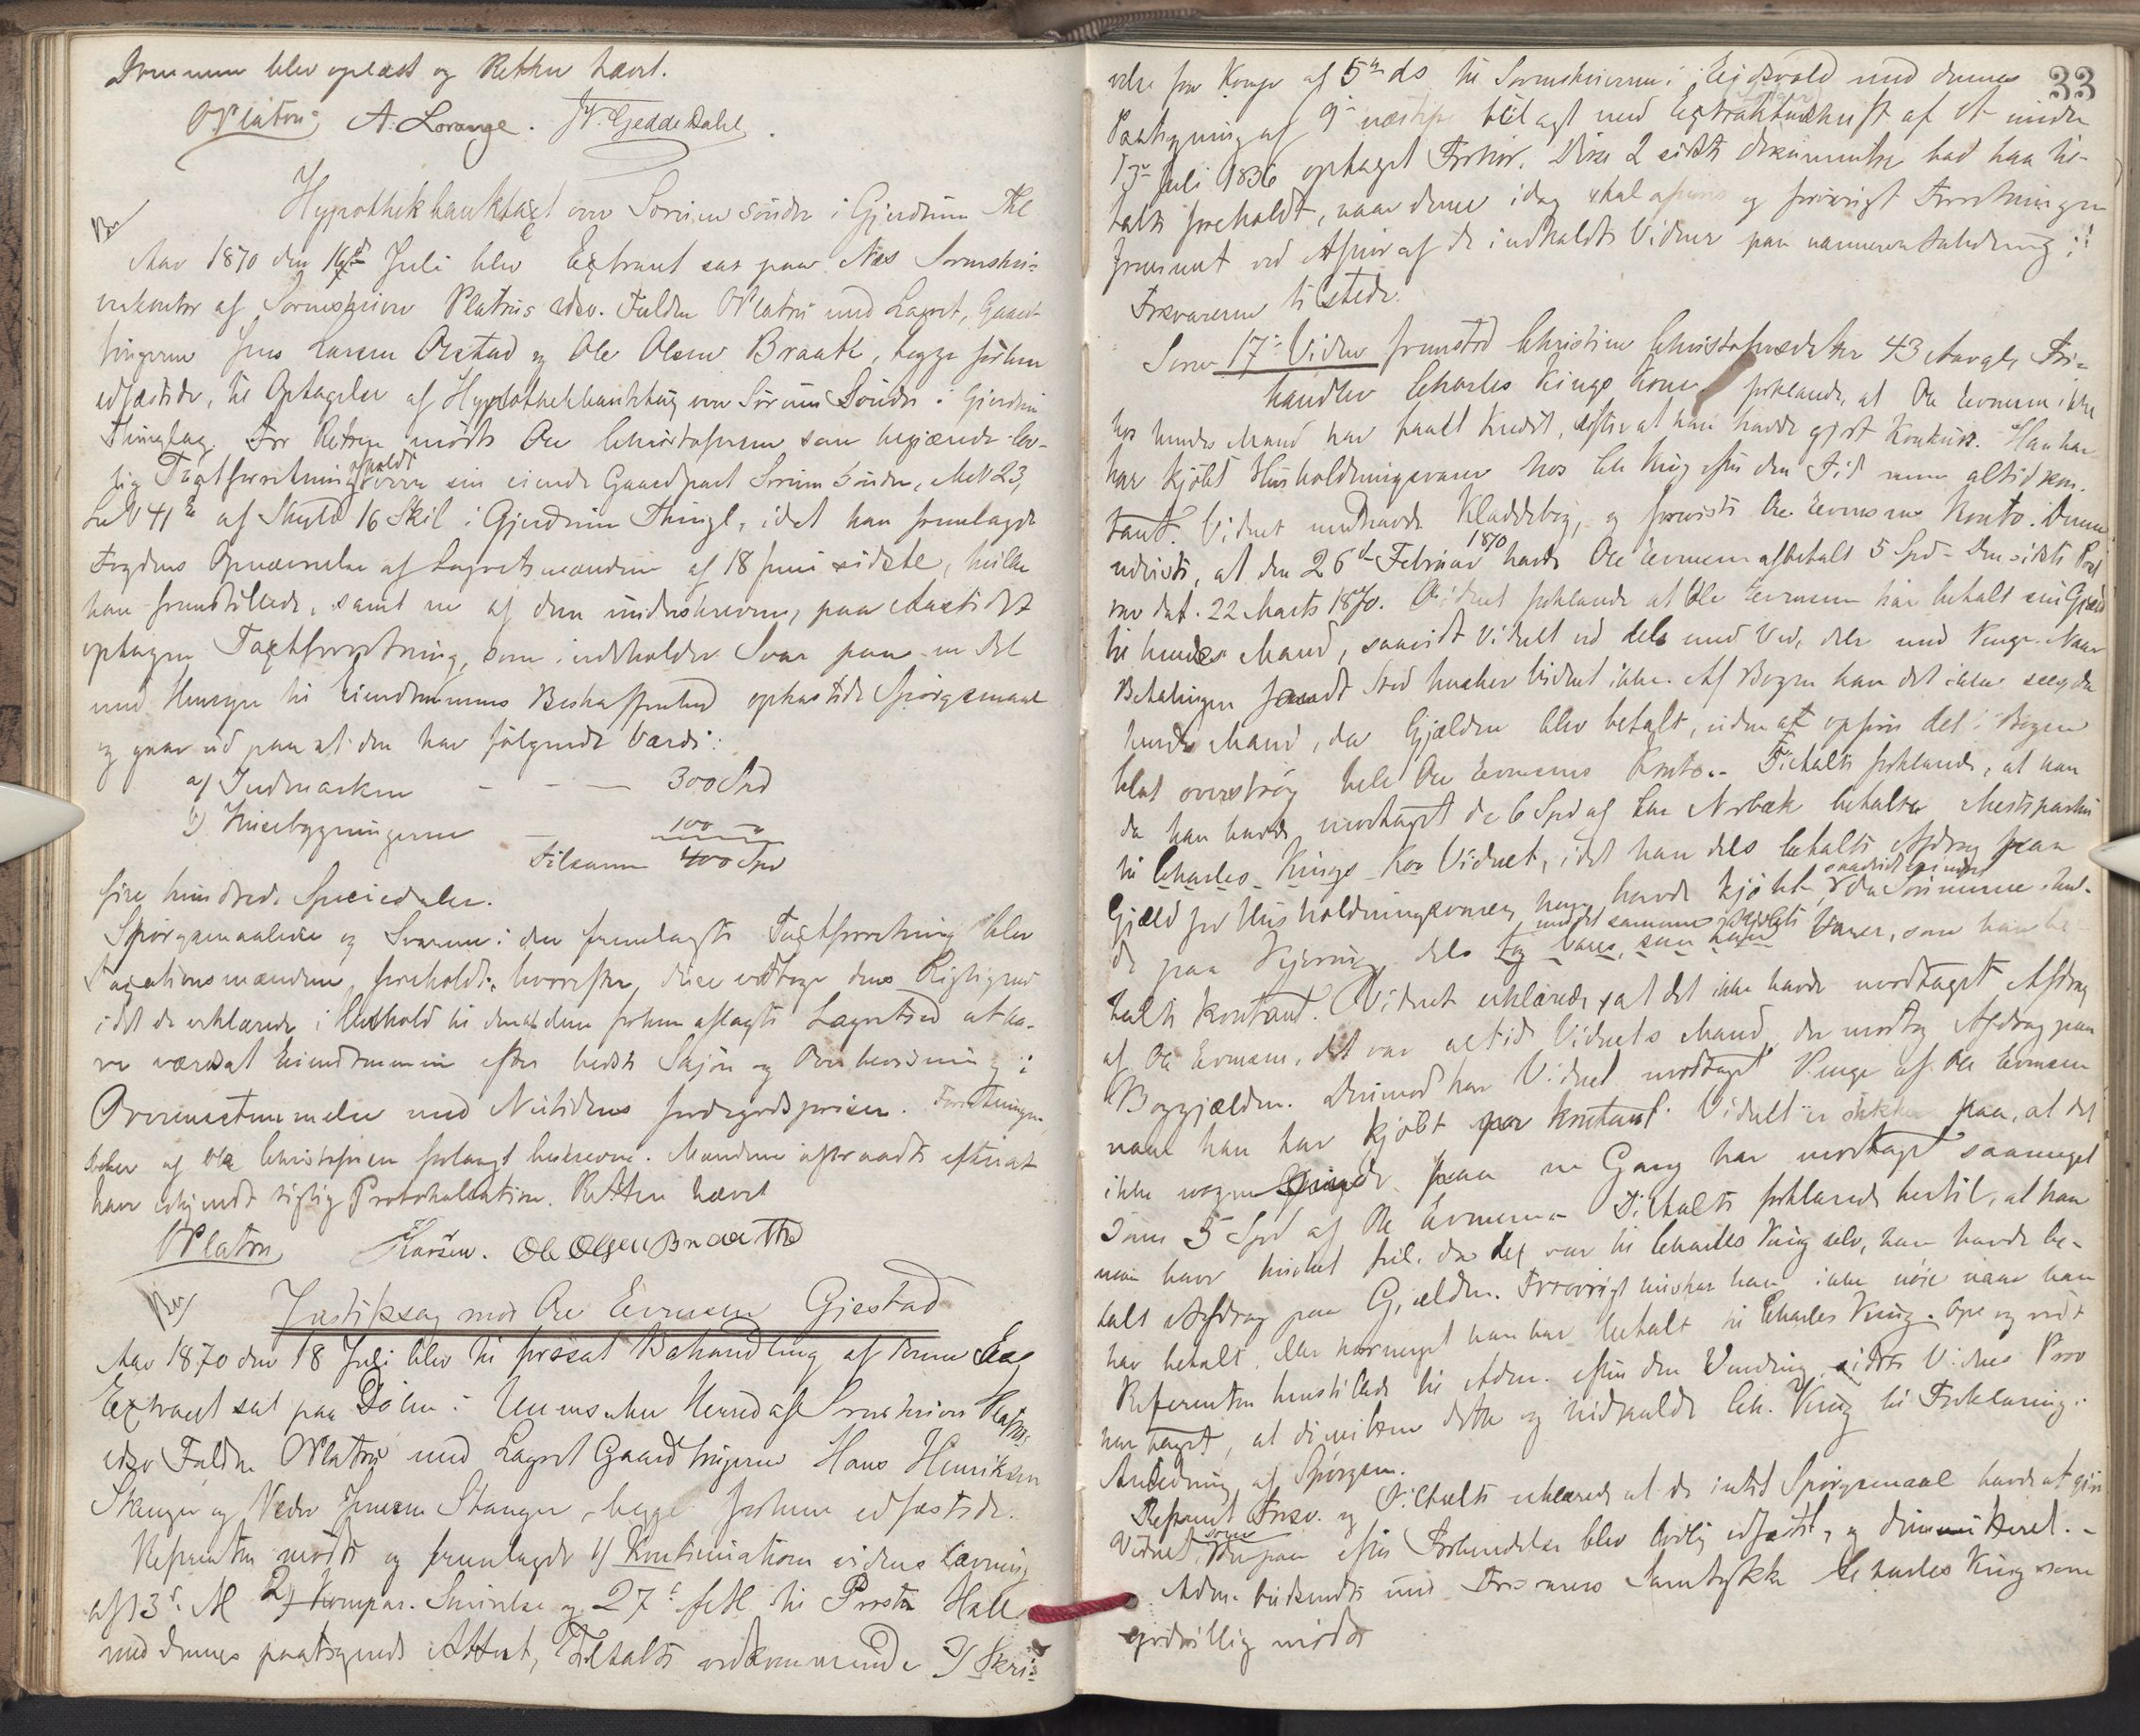 Dommen blev oplæst og Retten hævet.
O Platou A. Lorange. W. Gjedde Dahl.
Hypothekbanktaxt over Sørum søndre i Gjerdrum Thl
Aar 1870 den 16de Juli blev Extraret sat paa Næs Sorenskri-
verkontor af Sorenskriver Platous edsv. Fuldm O Platou med Lagret, Gaard-
brugerne Jens Larsen Ørstad og Ole Olsen Braate, begge forhen
edfæstede, til Optagelse af Hypothekbanktaxt over Sørum Søndre i Gjerdrum
Thinglag. For Retten mødte Ole Christophersen som begjærede lov-
lig Taxtforretning afholdt over sin eiende Gaardpart Sørum Søndre, M.N. 23,
L.N. 41 af Skyld 16 Skil i Gjerdrum Thingl., idet han fremlagde
Fogdens Opnævnelse af Lagretsmændene af 18 Juni sidstl, hvilke
han fremstillede, samt en af dem underskreven, paa Aastedet
optagen Taxtforretning, som indeholder Svar paa en Del
med Hensyn til Eiendommens Beskaffenhed opkastede Spørgsmaal
og gaar ud paa at den har følgende Værdi:
a) Indmarken - - — 300 Spd
b) Husebygningerne — 100 "
Tilsammen 400 Spd
fire hundrede Speciedaler.
Spørgsmaalene og Svarene i den fremlagte Taxtforretning blev
Taxationsmændene foreholdt, hvorefter disse vedtoge dens Rigtighed
idet de erklærede i Henhold til den af dem forhen aflagte Lagretsed at ha-
ve værdsat Eiendommen efter bedste Skjøn og Overbevisning i
Overensstemmelse med Nutidens Jordegodspriser. Forretningen
blev af Ole Christophersen forlangt beskreven. Mændene aftraadte efter at
have erkjendt rigtig Protokollation. Retten hævet
O Platou J Larsen. Ole Olsen Braathe
Justitssag mod Ole Evensen Gjestad
Aar 1870 den 18 Juli blev til fortsat Behandling af denne Sag
Extraret sat paa Dølin i Ullensaker Herred af Sorenskriver Platous
edsv Fuldm. O Platou med Lagret Gaardbrugerne Hans Henriksen
Stanger og Peder Jensen Stanger, begge forhen edfæstede.
Referenten mødte og fremlagde 1) Kontinuations varsel
af 13de. ds 2) Kompas. Skrivelse af 27de f. M. til Provst Hall
med dennes paategnede Attest, Tiltalte vedkommende 3) Skri-
33
velse fra Konge af 5te ds til Sorenskriveren i Eidsvold med dennes
Paategning af 9de næstefter bilagt med Extraktudskrift af et under
13de Juli 1836 optaget Forhør. Disse 2 sidste Dokumenter bad han Til-
talte foreholdt, naar denne idag skal afhøres og forøvrigt Forretningen
fremmet ved Afhør af de indkaldte Vidner paa nærmere Anledning.
Forsvareren tilstede.
Som 17de Vidne fremstod Christine Christophersdatter 43 Aar gl., Fri-
handler Charles Kings Kone, forklarede, at Ole Evensen ikke
hos hendes Mand har faaet Kredit, efterat han havde gjort Konkurs. Han har
har kjøbt Husholdningsvarer hos Ch. King efter den Tid men altid kon-
tant. Vidnet medhavde Kladdebog, og foreviste Ole Evensens Konto. Denne
udviste, at den 26de Februar 1870 havde Ole Evensen afbetalt 5 Spd. Den sidste Post
var dat. 22 Marts 1870. Vidnet forklarede at Ole Evensen har betalt sin Gjæld
til hendes Mand, saavidt Vidnet ved dels med Ved, dels med Penge. Naar
Betalingen fandt Sted husker Vidnet ikke. Af Bogen kan det ikke sees, da
hendes Mand, da Gjælden blev betalt, uden at opføre det i Bogen
blot overstrøg hele Ole Evensens Konto. Tiltalte forklarede, at han
da han havde modtaget de 6 Spd af Lar Norbæk betalte Mesteparten
til Charles Kings Kone Vidnet, idet han dels betalte Afdrag paa
Gjæld for Husholdningsvarer, han havde kjøbt, saavidt erindres da Svinene
paa dels tog Varer, som han med det samme Varer, som han be-
talte kontant. Vidnet erklærede, at det ikke havde modtaget Afdrag
af Ole Evensen, det var altid Vidnets Mand, der modtog Afdrag paa
Boggjælden. Derimod har Vidnet modtaget Penge af Ole Evensen
naar han har kjøbt par kontant. Vidnet er sikker paa, at det
ikke nogen paa en Gang har modtaget saameget
som 5 Spd af Ole Evensen. Tiltalte forklarede hertil, at han
maa have husket feil, da det var til Charles King selv, han havde be-
talt Afdrag paa Gjælden. Forøvrigt husker han ikke nøie naar han
har betalt, eller hvormeget han har betalt til Charles King.
Referenten henstillede til Adm. efter den Vending, sidste Vidnes Prov
har taget, at dimittere dette og indkalde Ch. King til Forklaring.
Anledning af Spørgsm.
Referent Forsv. og Tiltalte erklærede at de intet Spørgsmaal havde at gjøre
Vidnet, som derpaa efter Forhendelse blev lovlig edfæstet, og dimitteret.
Adm. bidsendte med Forsvarerens Samtykke Charles King som
godvillig mødte